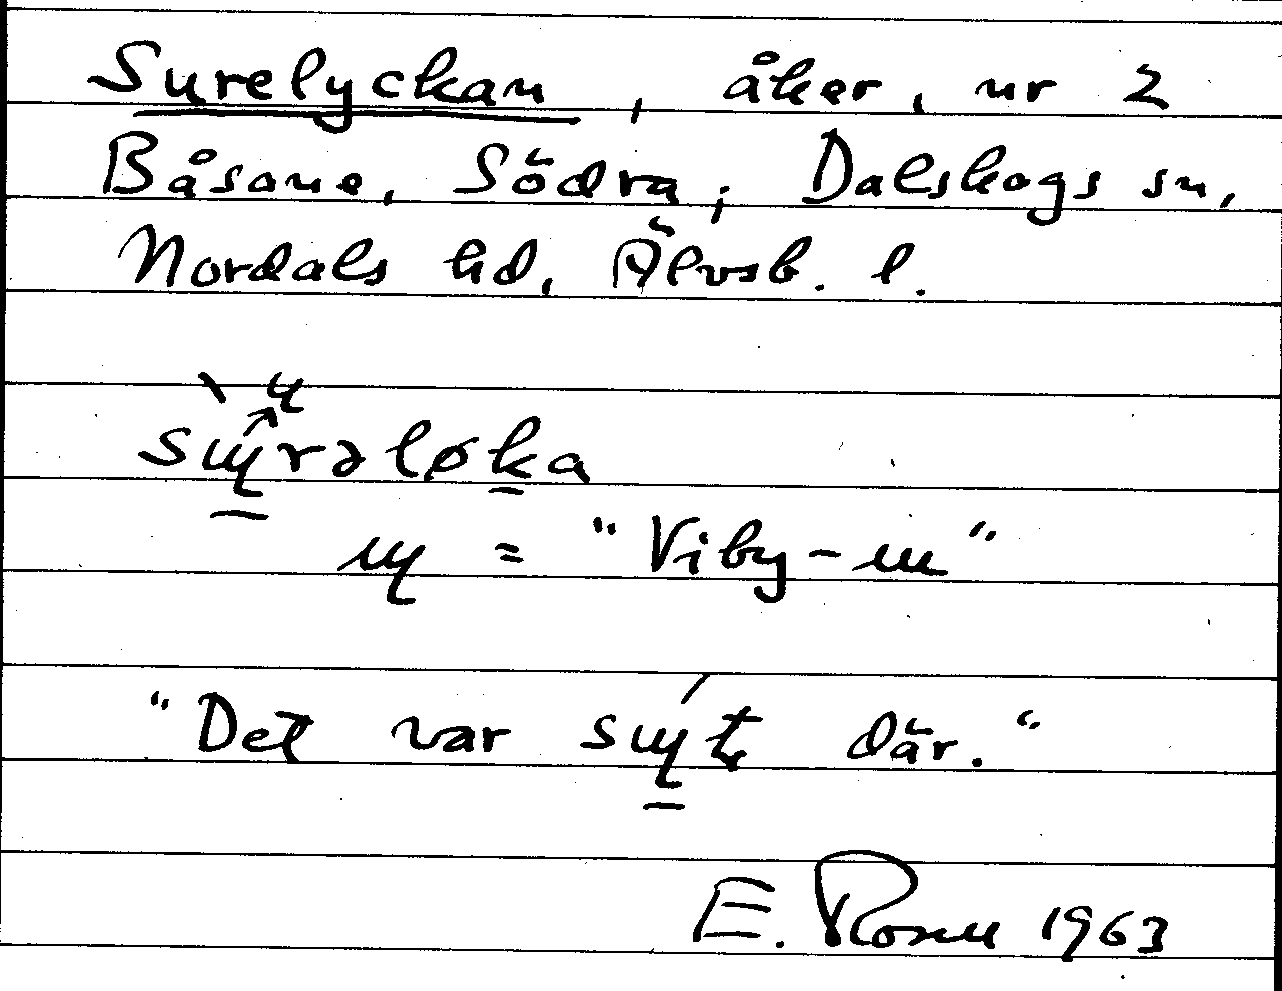 Surelyckan, åker, nr 2
Båsane, Södra, Dalskogs sn,
Nordals hd, Älvsb. l.
sɰrəløka
ɰ = "Viby-ɯ"
"Det var sɰ́t där."
E. Rosell 1963